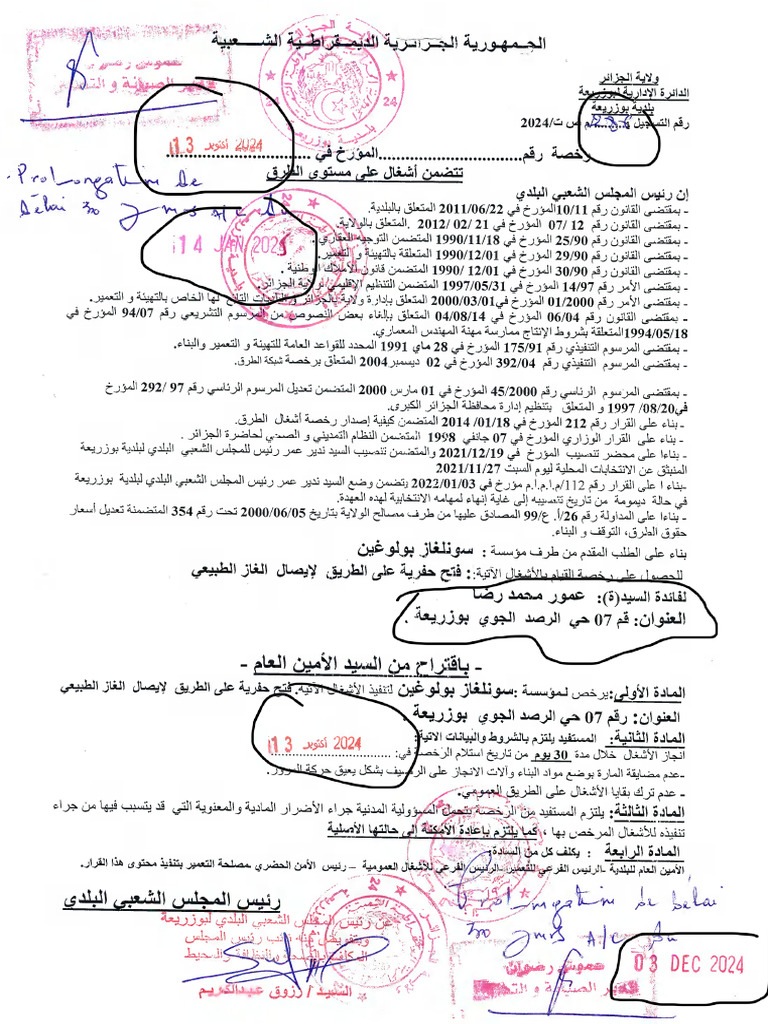 الجـمـهورية الجـزائـرية الديـمـقـراطـية الشـــعـبية
ولاية الجزائر
الدائرة الإدارية لبوزريعة
بلدية بوزريعة
رقم التسجيل ت/2024
رخصة رقم...................المؤرخ في ...................
13 أكتوبر 2024
تتضمن أشغال على مستوى الطرق
Prolongation de
délai 30 jours a/c du
14 JAN 2025
إن رئيس المجلس الشعبي البلدي
- بمقتضى القانون رقم 10/11 المؤرخ في 2011/06/22 المتعلق بالبلدية.
- بمقتضى القانون رقم 12 /07 المؤرخ في 21 /02 /2012 .المتعلق بالولاية.
- بمقتضى القانون رقم 25/90 المؤرخ في 1990/11/18 المتضمن التوجيه العقاري.
- بمقتضى القانون رقم 29/90 المؤرخ في 1990/12/01 المتعلقة بالتهيئة و التعمير
- بمقتضى القانون رقم 30/90 المؤرخ في 12/01 /1990 المتضمن قانون الأملاك الوطنية .
- بمقتضى الأمر رقم 14/97 المؤرخ في 1997/05/31 المتضمن التنظيم الإقليمي لولاية الجزائر.
- بمقتضى الأمر رقم 01/2000 المؤرخ في2000/03/01 المتعلق بإدارة ولاية الجزائر و البلديات التابع لها الخاص بالتهيئة و التعمير.
- بمقتضى القانون رقم 06/04 المؤرخ في 04/08/14 المتعلق بإلغاء بعض النصوص من المرسوم التشريعي رقم 94/07 المؤرخ في
1994/05/18المتعلقة بشروط الإنتاج ممارسة مهنة المهندس المعماري.
- بمقتضى المرسوم التنفيذي رقم 175/91 المؤرخ في 28 ماي 1991 المحدد للقواعد العامة للتهيئة و التعمير والبناء.
- بمقتضى المرسوم التنفيذي رقم 392/04 المؤرخ في 02 ديسمبر2004 المتعلق برخصة شبكة الطرق.
- بمقتضى المرسوم الرئاسي رقم 45/2000 المؤرخ في 01 مارس 2000 المتضمن تعديل المرسوم الرئاسي رقم 97 /292 المؤرخ
في08/20/ 1997 و المتعلق بتنظيم إدارة محافظة الجزائر الكبرى.
- بناء على القرار رقم 212 المؤرخ في 01/18/ 2014 المتضمن كيفية إصدار رخصة أشغال الطرق.
- بناء على القرار الوزاري المؤرخ في 07 جانفي 1998 المتضمن النظام التمديني و الصحي لحاضرة الجزائر .
- بناءا على محضر تنصيب المؤرخ في 2021/12/19 والمتضمن تنصيب السيد تدير عمر رئيس للمجلس الشعبي البلدي لبلدية بوزريعة
المنبثق عن الانتخابات المحلية ليوم السبت 2021/11/27
-بناء ا على القرار رقم 112/م.ا.م.ا.م مؤرخ في 2022/01/03 يتضمن وضع السيد تدير عمر رئيس المجلس الشعبي البلدي لبلدية بوزريعة
في حالة ديمومة من تاريخ تنصيبه إلى غاية إنهاء لمهامه الانتخابية لهده العهدة.
- بناءا على المداولة رقم 26/أ. ع/99 المصادق عليها من طرف مصالح الولاية بتاريخ 2000/06/05 تحت رقم 354 المتضمنة تعديل أسعار
حقوق الطرق، التوقف و البناء.
بناء على الطلب المقدم من طرف مؤسسة : سونلغاز بولوغين
للحصول على رخصة القيام بالأشغال الآتية.: فتح حفرية على الطريق لإيصال الغاز الطبيعي
لفائدة السيد(ة): عمور محمد رضا
العنوان: قم 07 حي الرصد الجوي بوزريعة .
- باقتراح من السيد الأمين العام -
المادة الأولى:يرخص لـمؤسسة :سونلغاز بولوغين لتنفيذ الأشغال الآتية. فتح حفرية على الطريق لإيصال الغاز الطبيعي
العنوان: رقم 07 حي الرصد الجوي بوزريعة .
المادة الثانية: المستفيد يلتزم بالشروط والبيانات الاتية:
انجاز الأشغال خلال مدة 30 يوم من تاريخ استلام الرخصة في: ...................
13 أكتوبر 2024
-عدم مضايقة المارة بوضع مواد البناء وآلات الانجاز على الرصيف بشكل يعيق حركة المرور.
- عدم ترك بقايا الأشغال على الطريق العمومي.
المادة الثالثة: يلتزم المستفيد من الرخصة بتحمل المسؤولية المدنية جراء الأضرار المادية والمعنوية التي قد يتسبب فيها من جراء
تنفيذه للأشغال المرخص بها ، كما يلتزم بإعادة الأمكنة إلى حالتها الأصلية
المادة الرابعة : يكلف كل من السادة:
الأمين العام للبلدية -الرئيس الفرعي للتعمير- الرئيس الفرعي للأشغال العمومية – رئيس الأمن الحضري .مصلحة التعمير بتنفيذ محتوى هذا القرار.
رئيس المجلس الشعبي البلدي
عن رئيس المجلس الشعبي البلدي لبوزريعة
وبتفويض منه نائب رئيس المجلس
السيد / رزوق عبدالكريم
Prolongation de délai
30 jours a/c du
03 DEC 2024
عموش رضوان